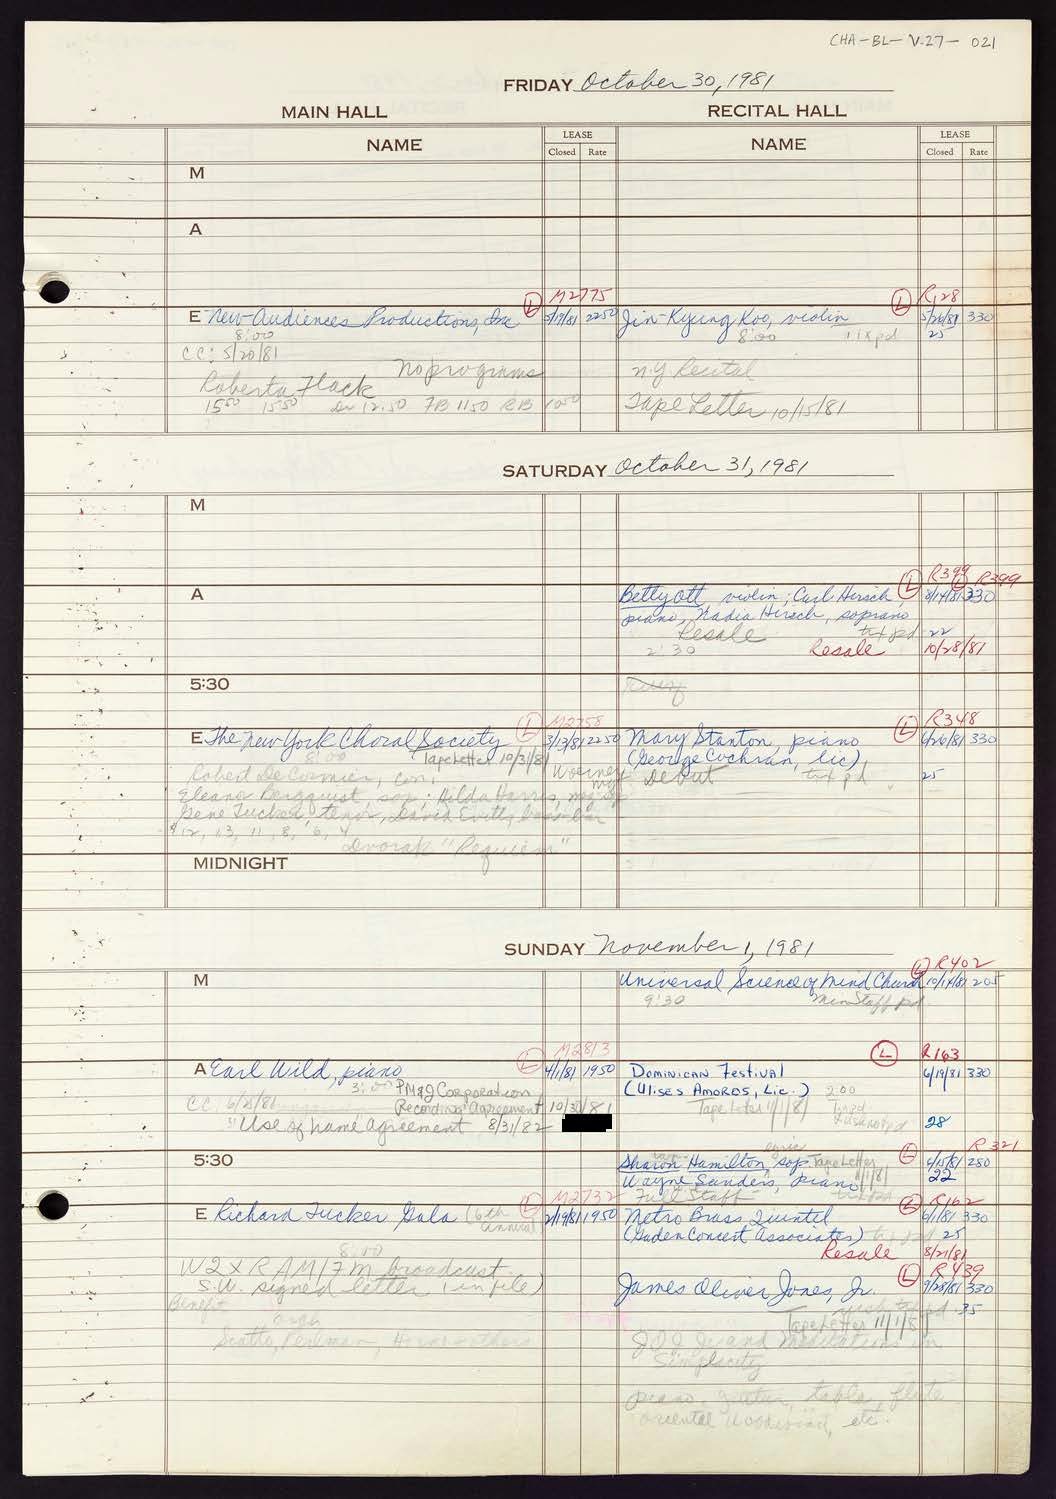 CHA-BL-V.27- 021
FRIDAY October 30, 1981
MAIN HALL RECITAL HALL
NAME LEASE Closed Rate NAME LEASE Closed Rate
M
A
L M2775 L R128
E New Audiences Productions, Inc 5/19/81 2250 Jin-Kyung Koo, violin 5/26/81 330
8:00 8:00 tix pd 25
CC: 5/20/81
No programs N.Y. Recital
Roberta Flack
15.50 15.50 Dr 12.50 FB 11.50 RB 10.50 Tape Letter 10/15/81
SATURDAY October 31, 1981
M
L R399 L R399
A Betty Ott violin; Carl Hirsch, 8/14/81 330
piano, Nadia Hirsch, soprano
Resale tix pd 22
2:30 Resale 10/28/81
5:30
L M2758 L R348
E The New York Choral Society 3/13/81 2250 Mary Stanton, piano 6/26/81 330
8:00 Tape Letter 10/31/81 (George Cochran, lic)
Robert DeCormier, con; Debut tix pd 25
Eleanor Bergquist, sop; Hilda Harris, mezzo
Gene Tucker, tenor, David Evitts, bass-bar
$12, 13, 11, 8, 6, 4
Dvorak "Requiem"
MIDNIGHT
SUNDAY November 1, 1981
L R402
M Universal Science of Mind Church 10/14/81 205
9:30 Min Staff pd
L M2813 L R163
A Earl Wild, piano 4/1/81 1950 DOMINICAN FESTIVAL 6/19/81 330
3:00 PM&J Corporation (ULISES AMOROS, LIC.) 2:00
CC: 6/8/81 Recording Agreement 10/30/81 Tape Letter 11/1/81 tix pd
Use of name agreement 8/31/82 28
5:30 L R321
Sharon Hamilton, sop Tape Letter 11/1/81 6/15/81 250
Wayne Sanders, piano 22
Full Staff tix pd
L M2732 L R162
E Richard Tucker Gala (6th annual) 2/19/81 1950 Metro Brass Quintet 6/1/81 330
8:00 (Gaden Concert Associates) tix pd 25
WQXR AM/FM broadcast Resale 8/21/81
L R439
S.W. signed letter (in file) James Oliver Jones, Jr. 9/28/81 330
Benefit tix pd 35
Tape Letter 11/1/81
Scotto, Perlman, Horne - others JOJ Jr and Meditations in
Simplicity
piano, guitar, tabla, flute
oriental woodwind, etc.